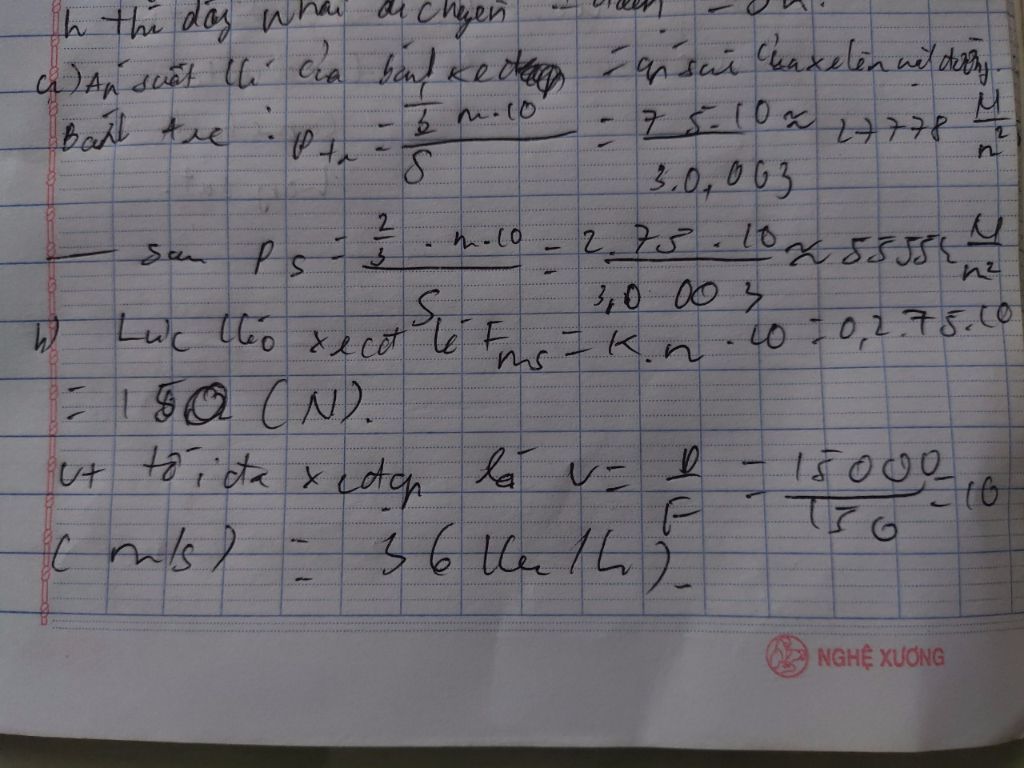 h thì dây phải di chuyển = 2h.
a) Áp suất khí của bánh xe đạp = áp suất của xe lên mặt đường.
Bánh trc : Ptr = 1/3 m.10 / S = 75.10 / 3.0,003 ≈ 27778 N/m²
— sau Ps = 2/3 . m.10 / S = 2.75.10 / 3,0 003 ≈ 55555 N/m²
b) Lực kéo xe có t là Fms = K.m.10 = 0,2.75.10
= 150 (N).
vt tối đa xe đạp là v = P/F = 15000/150 = 10
(m/s) = 36 km/h).
NGHỆ XƯƠNG